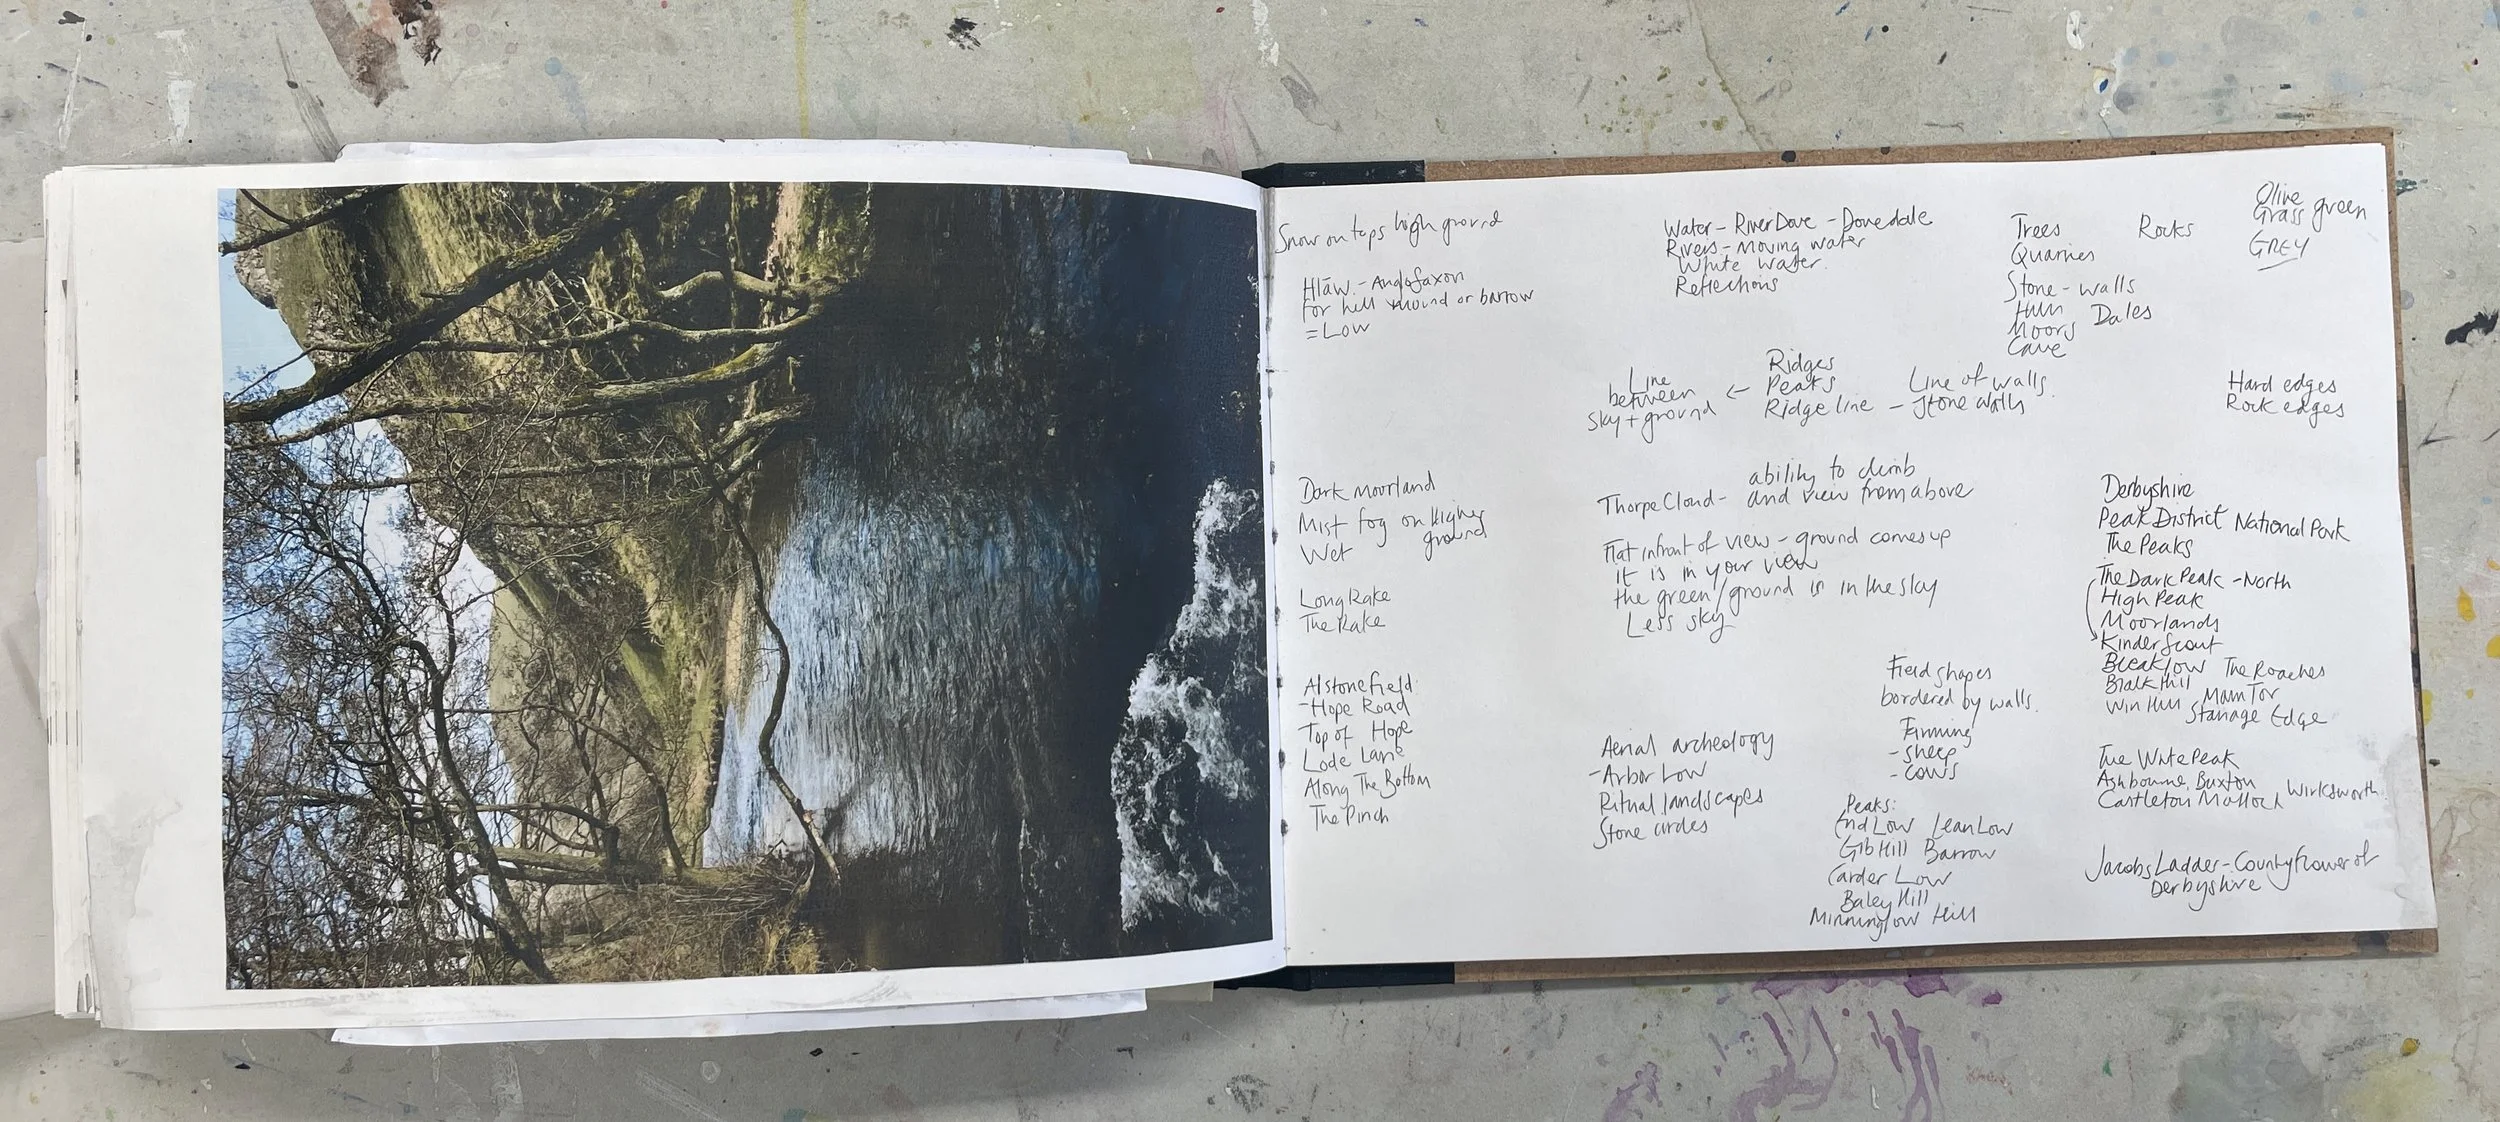 Snow on tops high ground
Hlāw. - Anglo Saxon
for hill mound or barrow
= Low
Dark moorland
Mist fog on Higher
ground
Wet
Long Rake
The Rake
Alstonefield
- Hope Road
Top of Hope
Lode Lane
Along The Bottom
The Pinch
Water - River Dove - Dovedale
Rivers - moving water
White water.
Reflections
Line
between
sky + ground
← Ridges
Peaks
Ridge line - Line of walls.
Stone walls
ability to climb
Thorpe Cloud - and view from above
Flat infront of view - ground comes up
it is in your view
the green/ground is in the sky
Less sky
Aerial archeology
- Arbor Low
Ritual landscapes
Stone circles
Field shapes
bordered by walls.
Farming
- sheep
- cows
Peaks:
End Low Lean Low
Gib Hill Barrow
Carder Low
Baley Hill
Minninglow Hill
Trees
Quarries
Stone - walls
Moors Dales
Cave
Rocks
Olive
Grass green
GREY
Hard edges
Rock edges
Derbyshire
Peak District National Park
The Peaks
The Dark Peak - North
High Peak
Moorlands
Kinder Scout
Bleaklow The Roaches
Win Hill Mam Tor
Stanage Edge
The Wite Peak
Ashbourne, Buxton Wirksworth.
Castleton Matlock
Jacobs Ladder - County flower of
Derbyshire